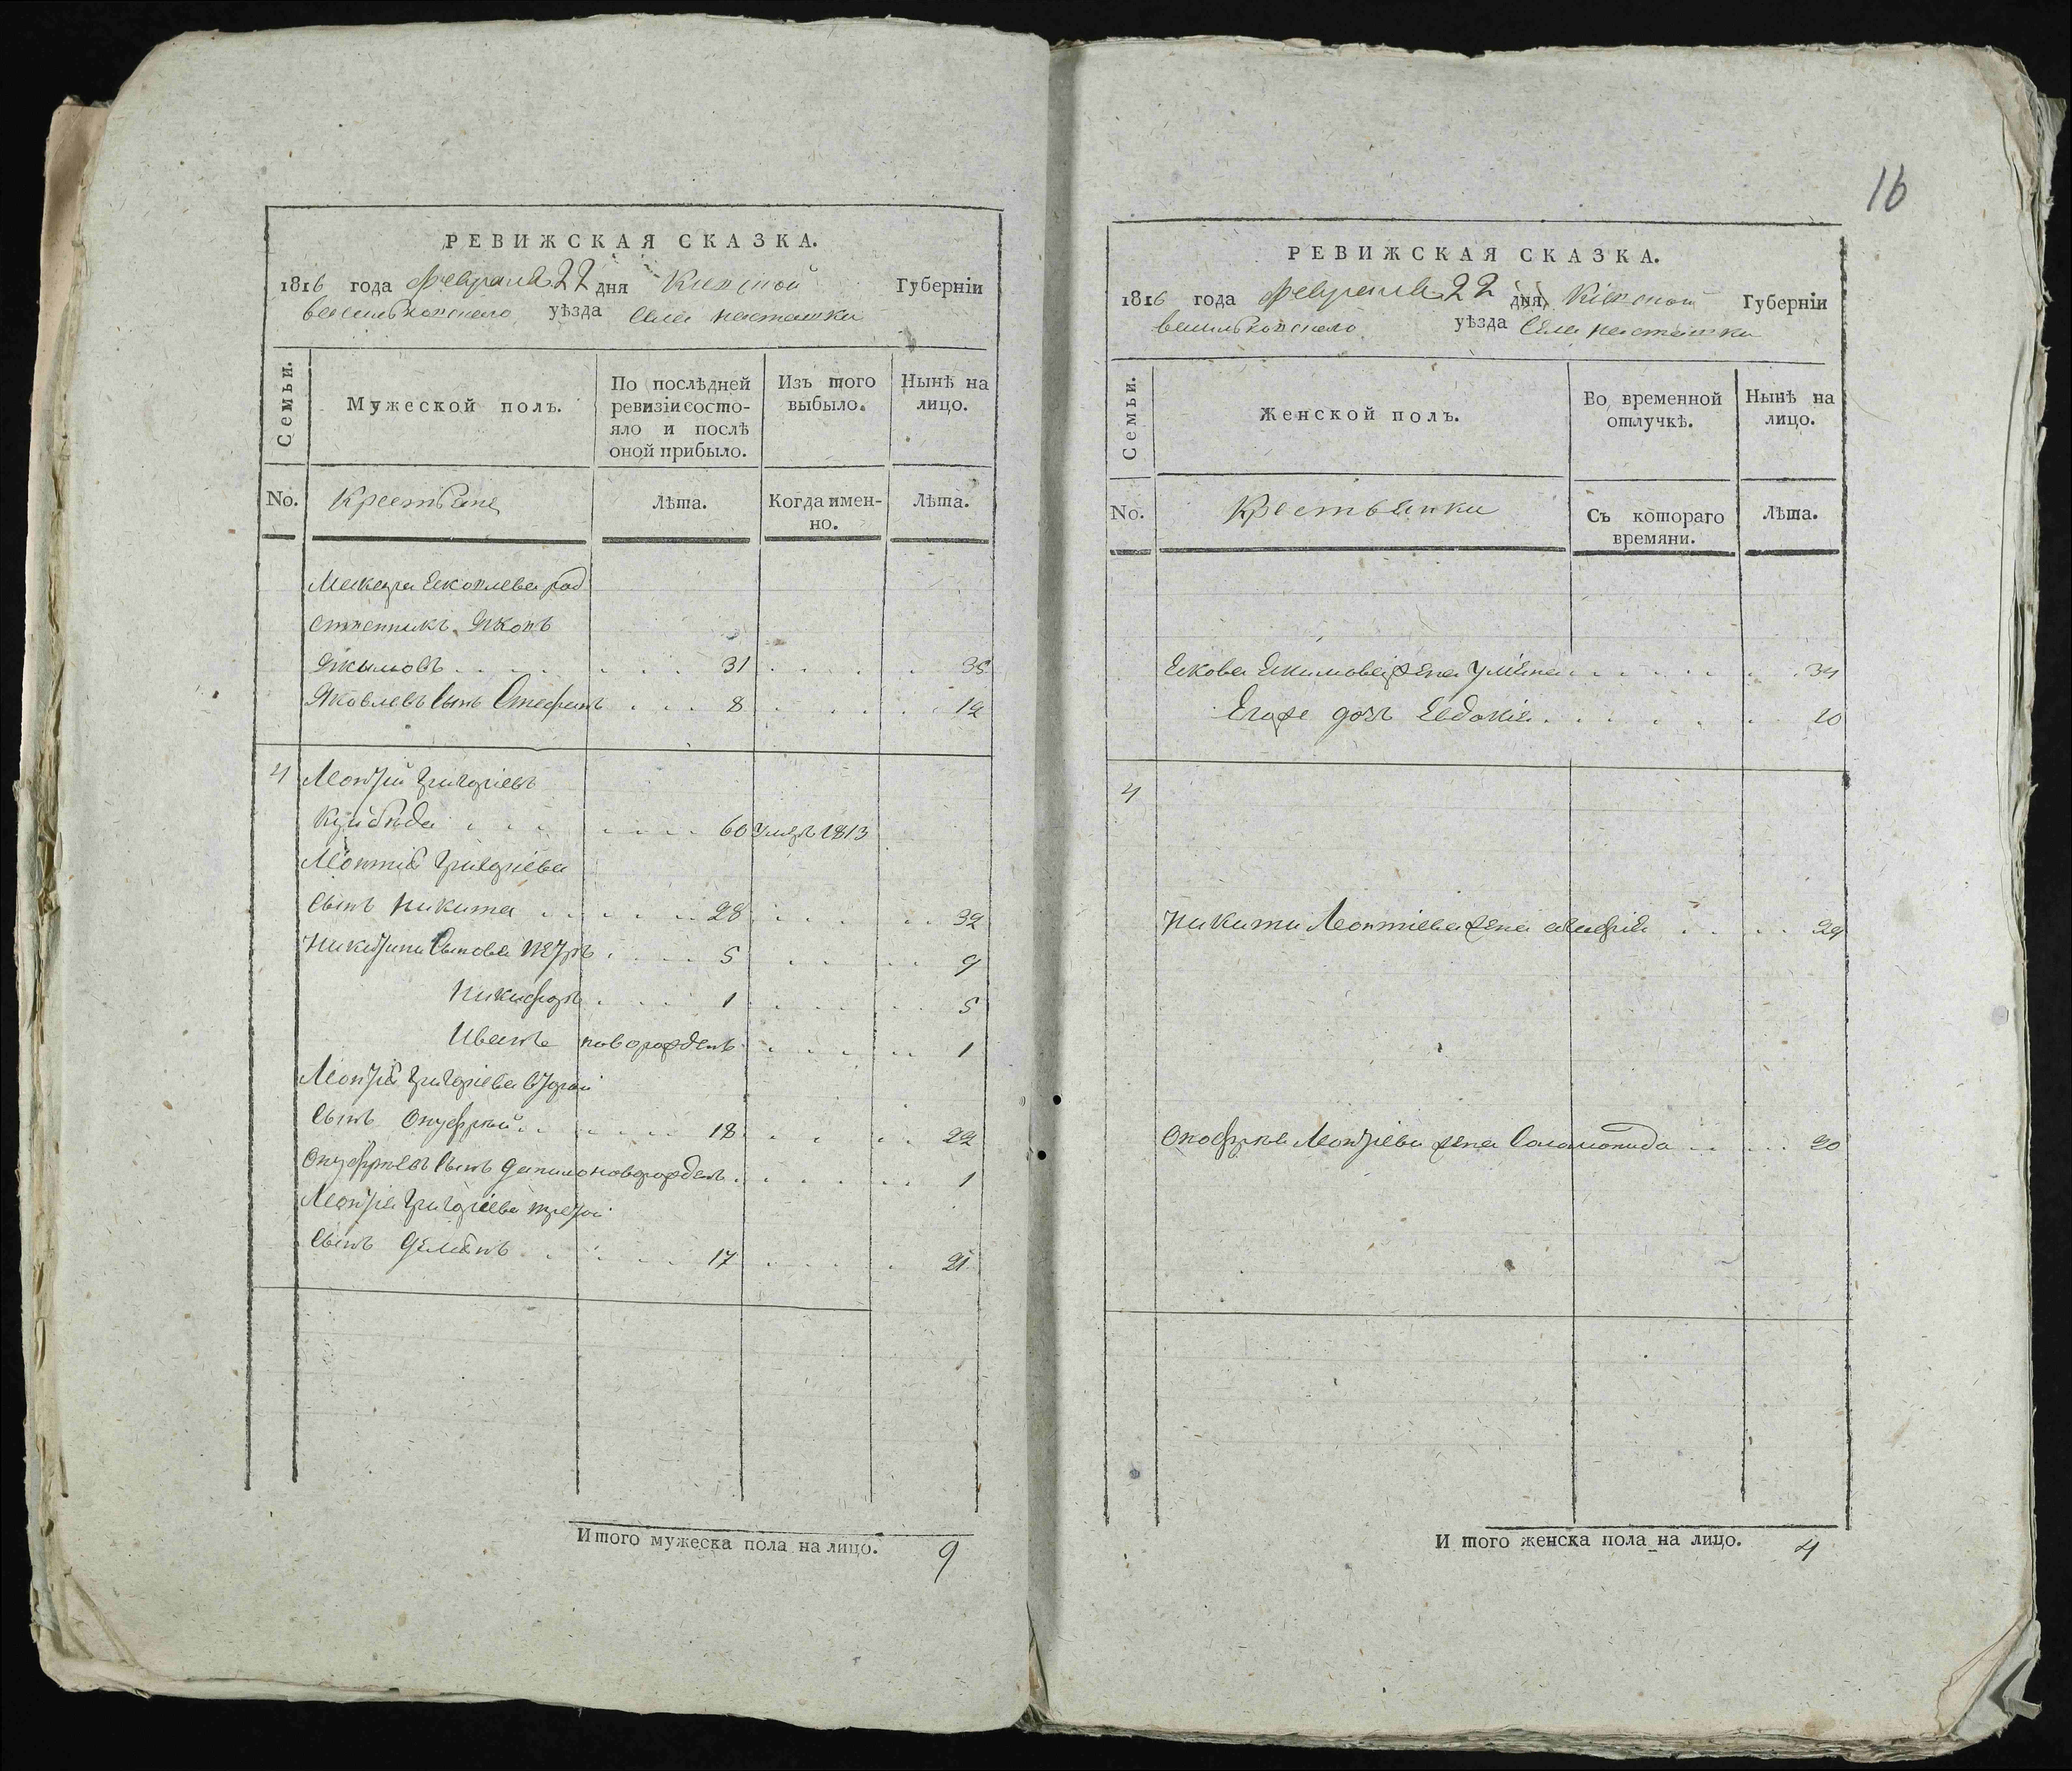 16
РЕВИЖСКАЯ СКАЗКА.
1816 года Февраля 22 дня Киевской Губернiи
васильковского уѣзда Села насташки
Семьи.
Мужеской полъ.
По послѣдней ревизiи состо-
яло и послѣ оной прибыло.
Изъ того выбыло.
Нынѣ на лицо.
No.
Крестьяне
Лѣта.
Когда имен-
но.
Лѣта.
Макара Яковлева род
ственникъ Яковъ
Якымовъ . . . 31 . . . 35
Яковлевъ сынъ Стефанъ . . . 8 . . . 12
4 Леонтій Григоріевъ
Куйбѣда . . . 60 умръ 1813
Леонтія Григоріева
сынъ Никита . . . 28 . . . 32
Никитины сыновья Петръ . . . 5 . . . 9
Никифоръ . . . 1 . . . 5
Иванъ новорожденъ . . . 1
Леонтія Григоріева второй
сынъ Онуфрій . . . 18 . . . 22
Онуфріевъ сынъ Данило новорожденъ . . . 1
Леонтія Григоріева третой
сынъ Демянъ . . . 17 . . . 21
Итого мужеска пола на лицо. 9
РЕВИЖСКАЯ СКАЗКА.
1816 года Февраля 22 дня Кіевской Губернiи
васильковского уѣзда Села насташки
Семьи.
Женской полъ.
Во временной отлучкѣ.
Нынѣ на лицо.
No.
Крестьянки
Съ котораго времяни.
Лѣта.
Якова Якимова жена Уляна . . . 34
Егоже дочь Евдокія . . . 10
4
Никиты Леонтіева жена . . . 29
Онофрія Леонтіева жена Соломонида . . . 20
Итого женска пола на лицо. 4